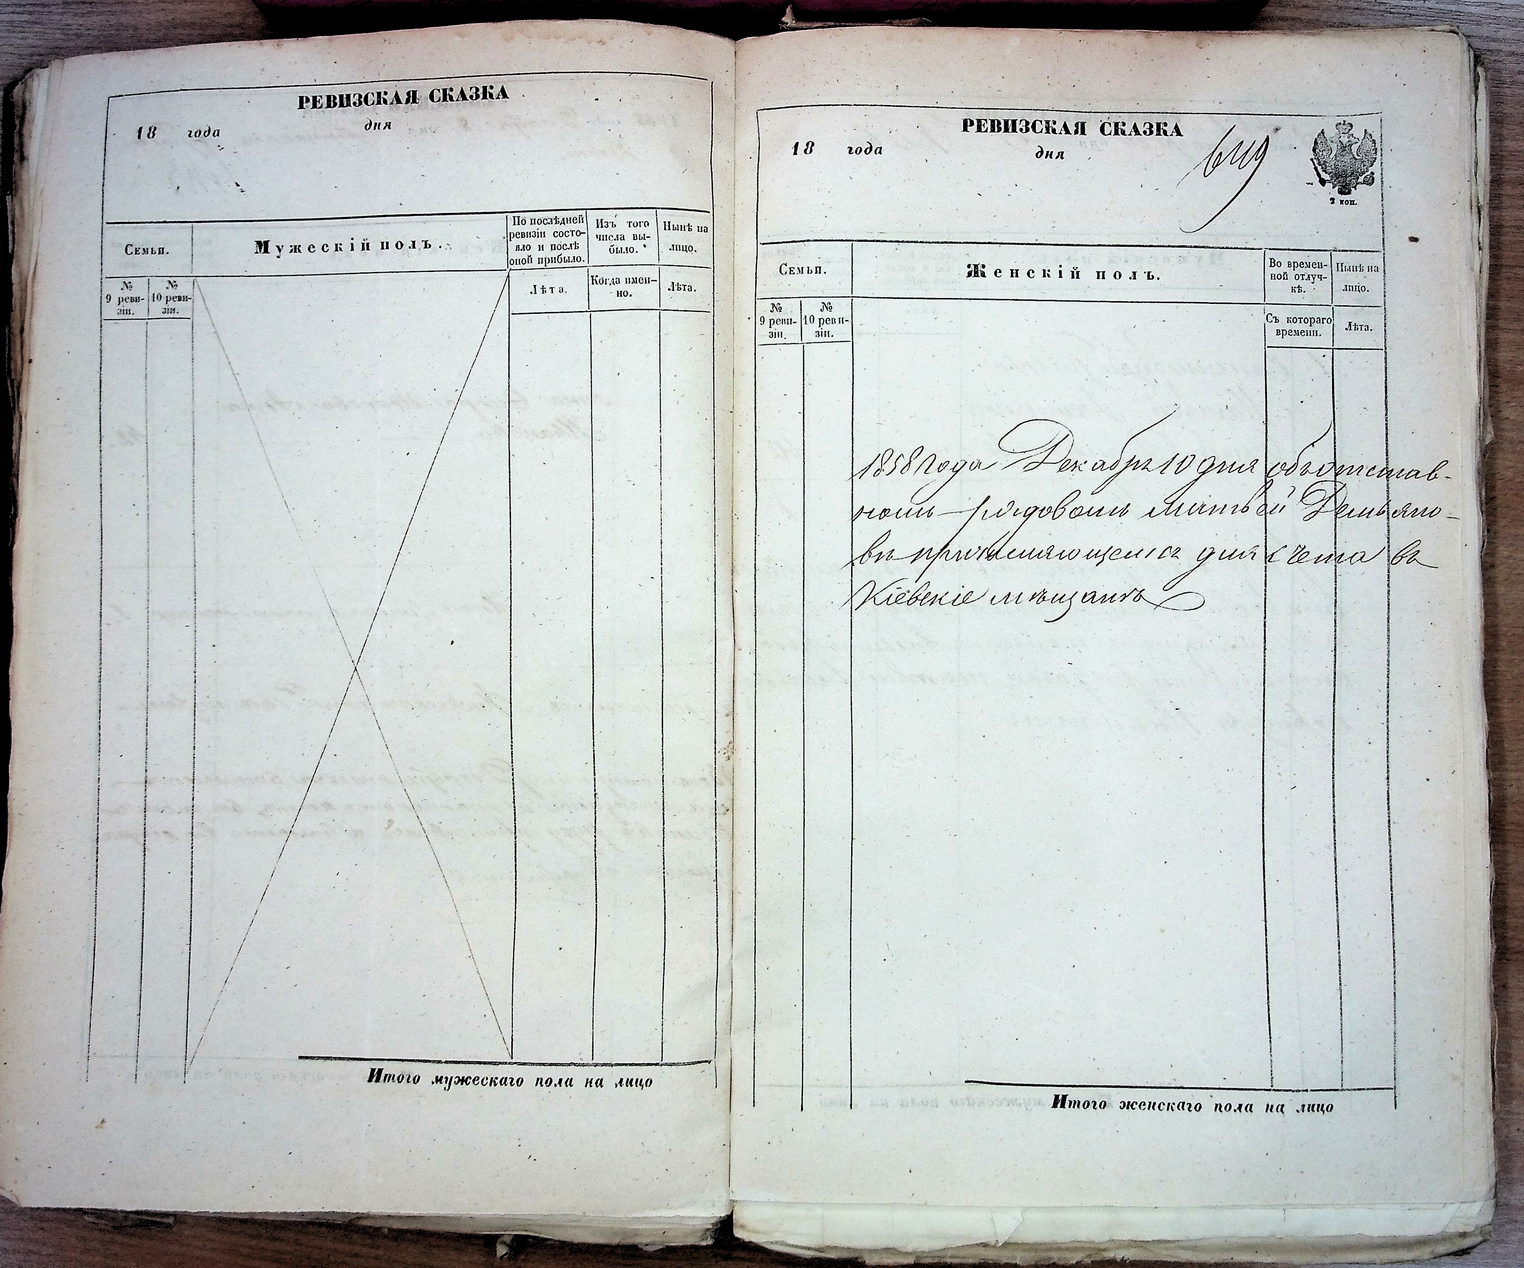 РЕВИЗСКАЯ СКАЗКА
18 года дня
Семьи.
Мужескій полъ.
По послѣдней ревизіи состояло и послѣ оной прибыло.
Изъ того числа выбыло.
Нынѣ на лицо.
№ 9 ревизіи.
№ 10 ревизіи.
Лѣта.
Когда именно.
Лѣта.
Итого мужескаго пола на лицо
РЕВИЗСКАЯ СКАЗКА
18 года дня
649
2 коп.
Семьи.
Женскій полъ.
Во временной отлучкѣ.
Нынѣ на лицо.
№ 9 ревизіи.
№ 10 ревизіи.
Съ котораго времени.
Лѣта.
1858 года Декабря 10 дня объ отстав-
номъ рядовомъ Матвей Демьяно-
вѣ причисляющемся для счета въ
Кіевскіе мѣщане
Итого женскаго пола на лицо